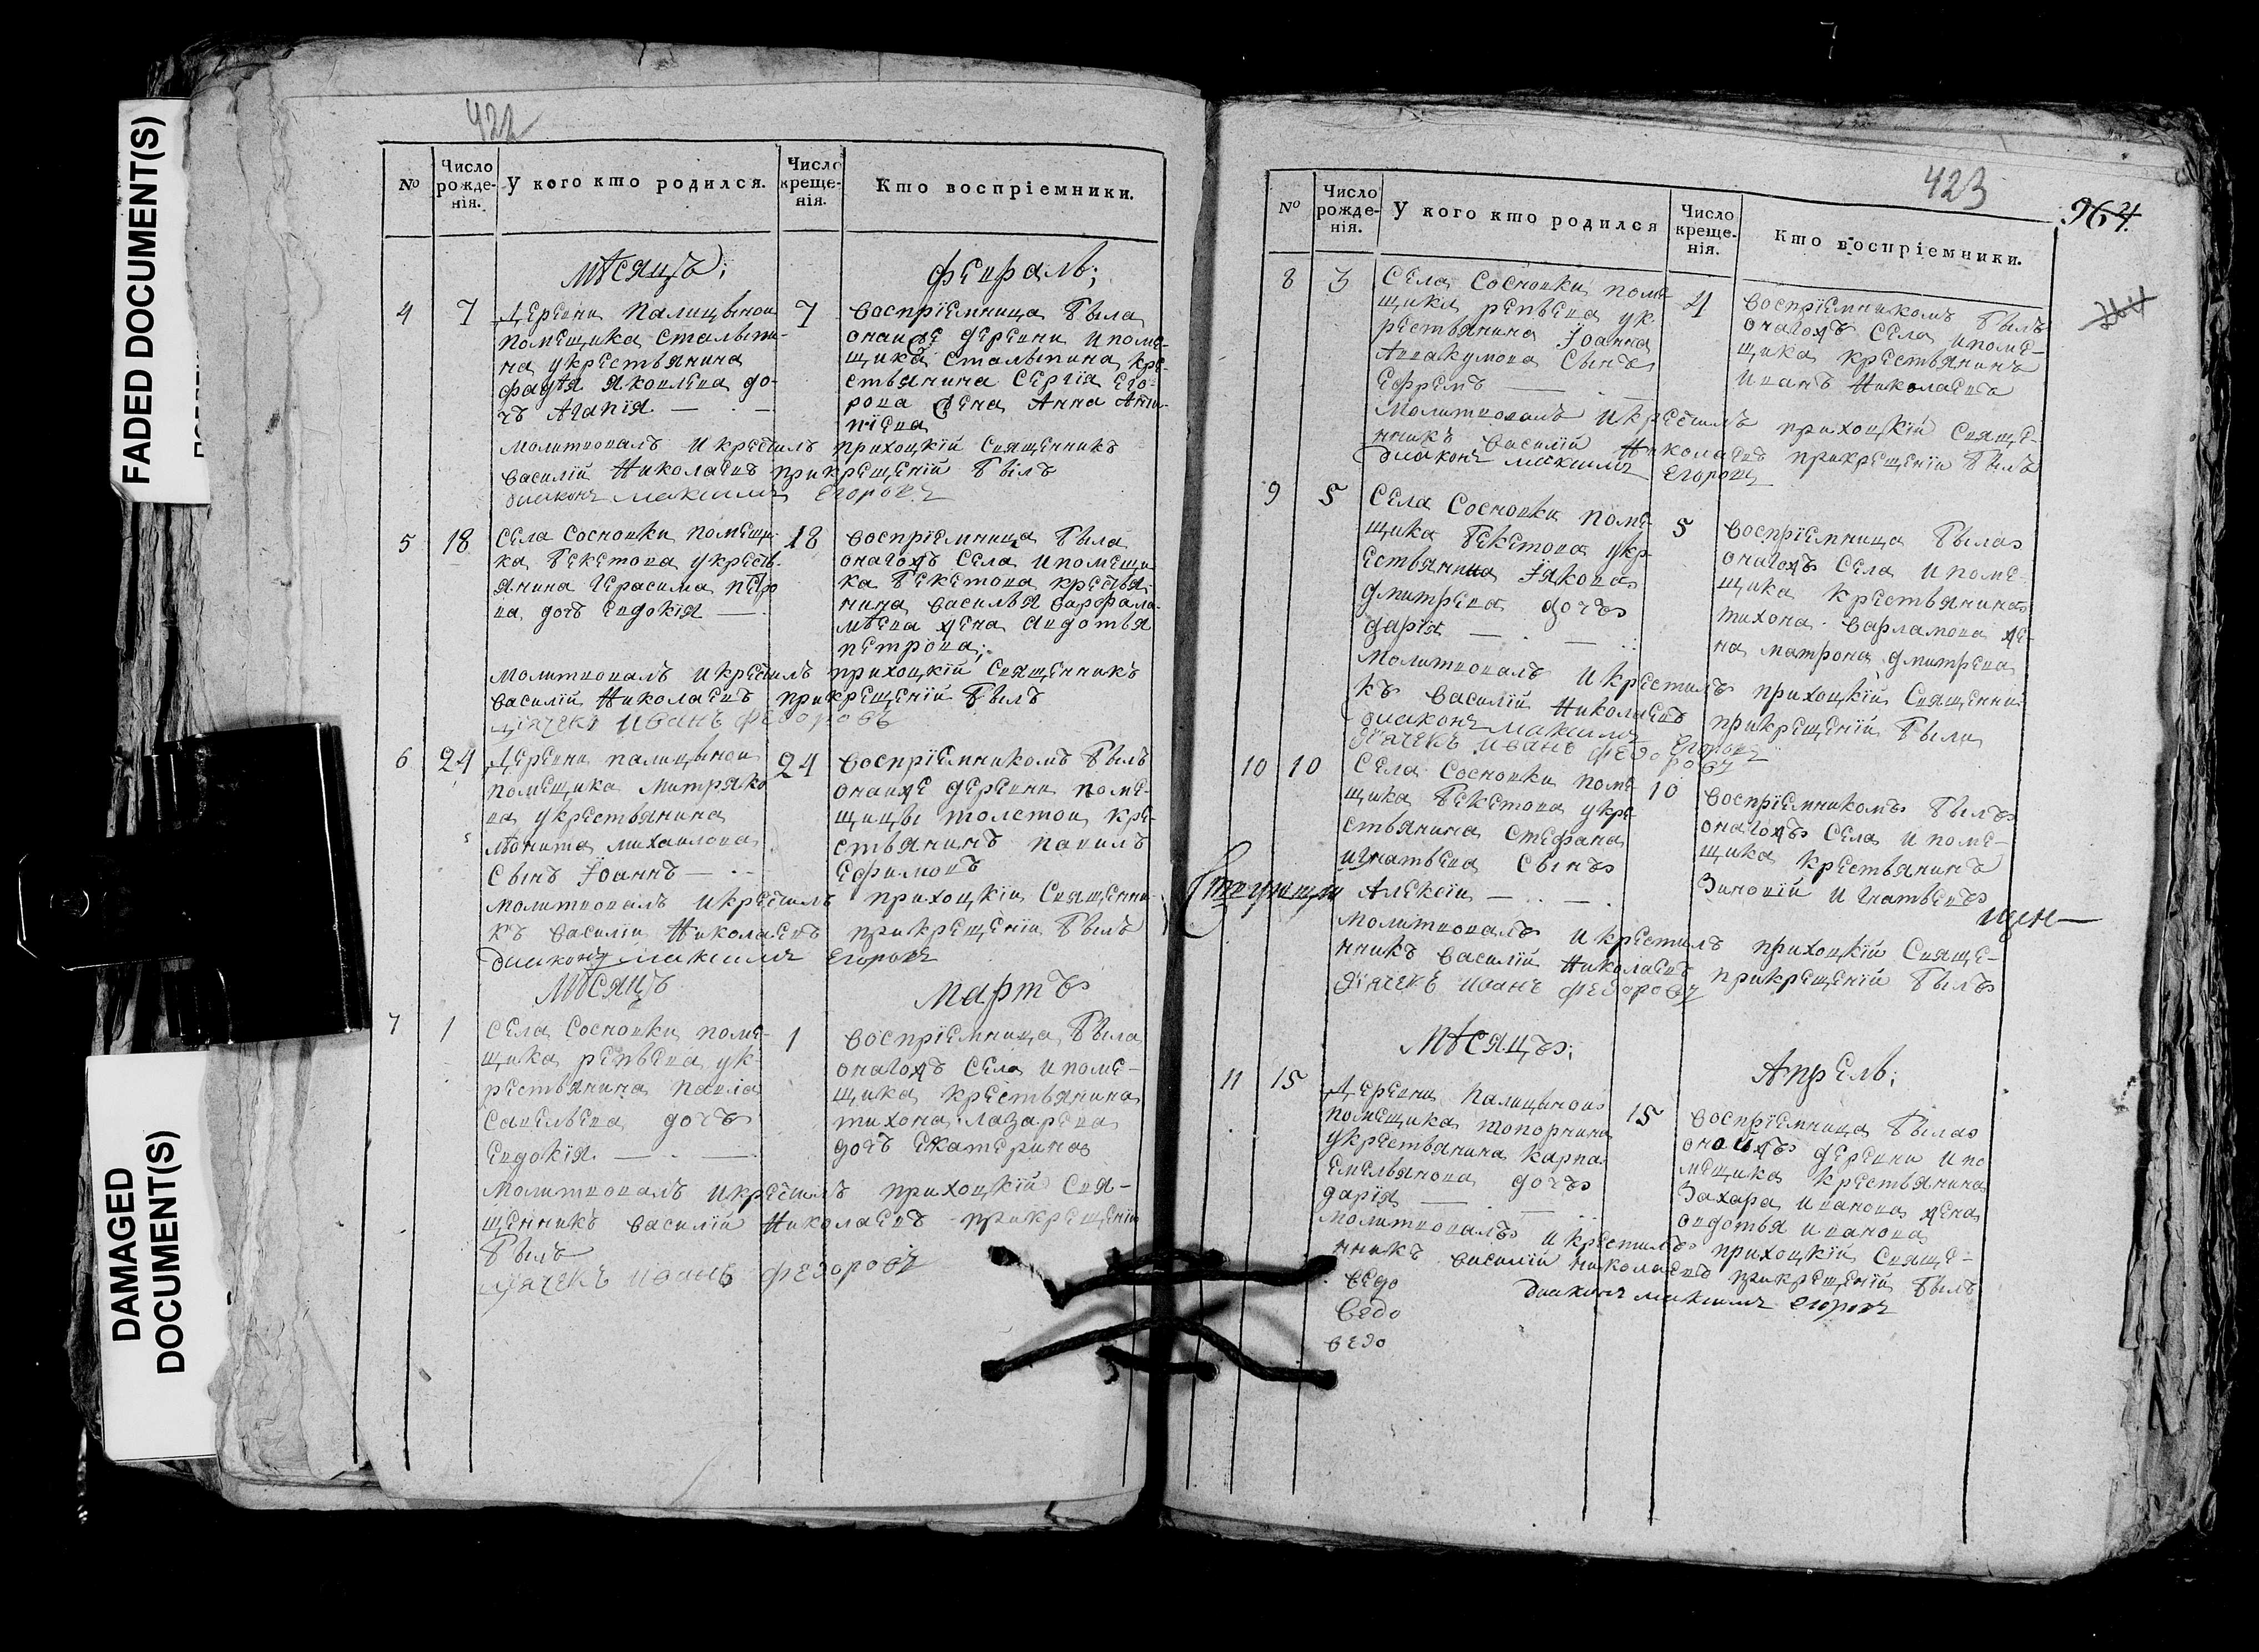 FADED DOCUMENT(S)
DAMAGED
DOCUMENT(S)
422
№
Число рожде-нія.
У кого кто родился.
Число креще-нія.
Кто воспріемники.
мѣсяцъ; февраль;
4 7
деревни Палицыной
помещика Сталыпи-
на укрестьянина
фадѣя Яковлева до-
чъ Агапія — . —
7
воспріемница была
онаиже деревни ипоме-
щика Сталыпина кре-
стьянина Сергія Его-
рова жена Анна Анти-
піева
молитвовалъ икрестилъ прихоцкій священникъ
василій Николаевъ прикрещеній былъ
диаконъ максимъ Егоровъ
5 18
Села Сосновки помещи-
ка бекетова укресть-
янина Герасима петро
ва дочъ евдокія —
18
воспріемница была
онагожъ Села ипомещи
ка бекетова крестья-
нина василья варфало-
мѣева жена авдотья
петрова;
молитвовалъ икрестилъ прихоцкій священникъ
василій Николаевъ прикрещеній былъ
дьячекъ иванъ федоровъ
6 24
деревни палицыной
помещика митряко
ва укрестьянина
никита михаилова
Сынъ Іоаннъ — . -
24
воспріемникомъ былъ
онаиже деревни поме-
щицы толстои кре-
стьянинъ павилъ
Ефимовъ
молитвовалъ икрестилъ прихоцкій священни-
къ василіи Николаевъ прикрещеніи былъ
диаконъ максимъ егоровъ
мѣсяцъ мартъ
7 1
Села Сосновки поме-
щика репьева ук-
рестьянина павла
Савельева дочъ
евдокія. — . —
1
воспріемница была
онагожъ Села ипоме-
щика крестьянина
тихона лазарева
дочъ екатерина
молитвовалъ икрестилъ прихоцкій свя-
щенникъ василій Николаевъ прикрещеніи
былъ
дьячекъ иванъ федоровъ
423
964
№
Число рожде-нія.
У кого кто родился
Число креще-нія.
Кто воспріемники.
8 3
Села Сосновки поме
щика репьева ук-
рестьянина Іоанна
Аввакумова Сынъ
Ефремъ — . —
4
воспріемникомъ былъ
онагожъ Села ипоме-
щика крестьянинъ
иванъ Николаевъ
молитвовалъ икрестилъ прихоцкіи свяще-
нникъ василій Николаевъ прикрещеніи былъ
диаконъ максимъ егоровъ
9 5
Села Сосновки поме
щика бекетова укр-
естьянина Іякова
дмитрева дочъ
дарія — . — .
5
воспріемница была
онагожъ Села ипоме-
щика крестьянина
тихона варламова же-
на матрона дмитрева
молитвовалъ икрестилъ прихоцкій священни-
къ василій Николаевъ прикрещеній были
диаконъ максимъ егоровъ
дьячекъ иванъ федоровъ
10 10
Села Сосновки поме
щика бекетова укре
стьянина стефана
игнатьева сынъ
Алексіи — . — .
10
воспріемникомъ былъ
онагожъ Села и поме-
щика крестьянинъ
Зиновій Игнатьевъ
щен—
молитвовалъ икрестилъ прихоцкій свяще-
нникъ василій Николаевъ прикрещеній былъ
дьячекъ иванъ федоровъ
мѣсяцъ; Апрель;
11 15
деревни палицыной
помещика топорнина
укрестьянина карпа
емельянова дочъ
дарія — . — .
15
воспріемница была
онаижъ деревни ипо
мещика крестьянина
Захара иванова жена
овдотья иванова
молитвовалъ икрестилъ прихоцкій свяще-
нникъ василій николаевъ прикрещеній былъ
диаконъ максимъ егоровъ
ведо
ведо
ведо